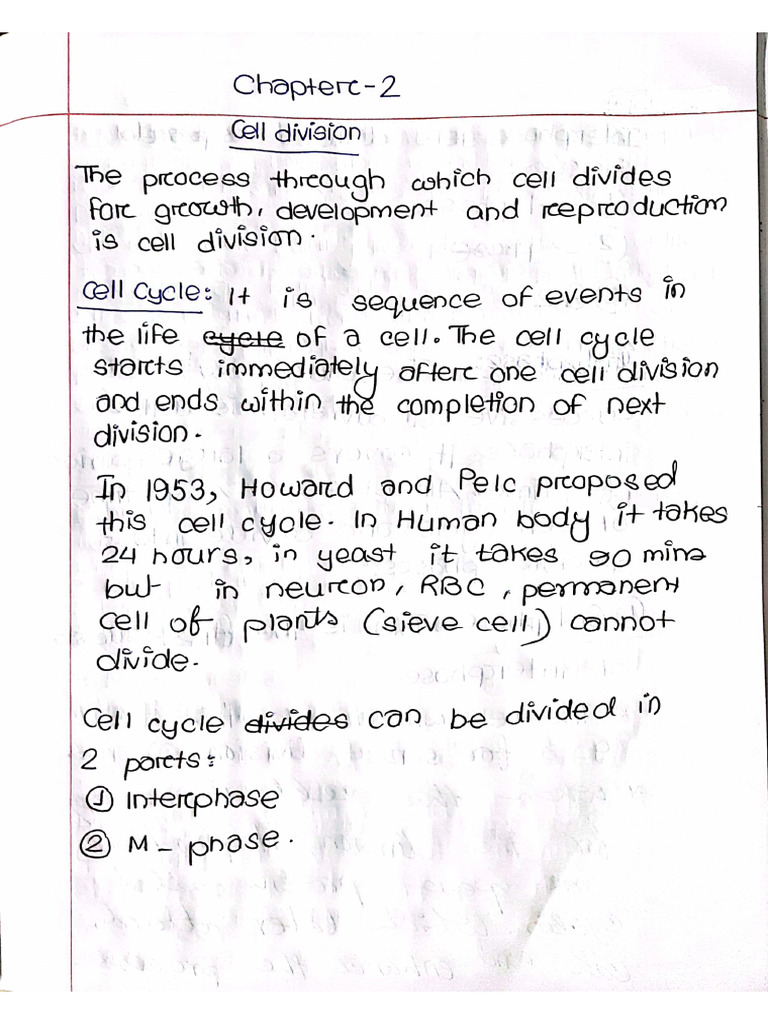 Chapter-2
Cell division
The process through which cell divides
for growth, development and reproduction
is cell division.
Cell Cycle: It is sequence of events in
the life ~~cycle~~ of a cell. The cell cycle
starts immediately after one cell division
and ends within the completion of next
division.
In 1953, Howard and Pelc proposed
this cell cycle. In Human body it takes
24 hours, in yeast it takes 90 mins
but in neuron, RBC, permanent
cell of plants (sieve cell) cannot
divide.
Cell cycle ~~divides~~ can be divided in
2 parts:
① Interphase
② M - phase.